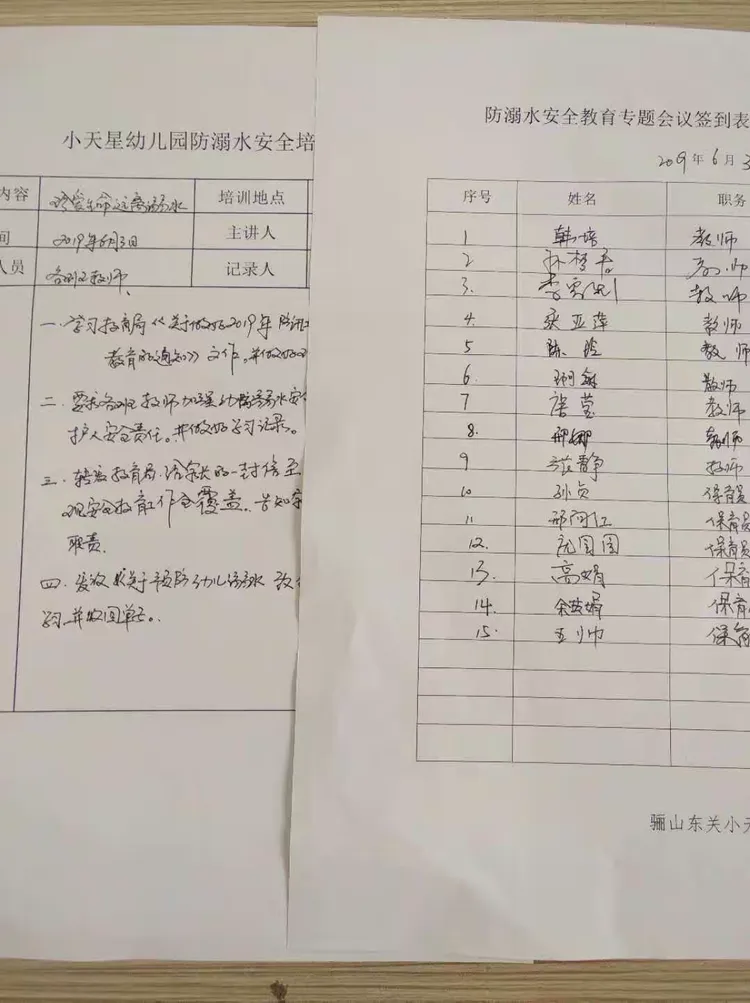 小天星幼儿园防溺水安全培
内容 珍爱生命远离溺水 培训地点
间 2019年6月3日 主讲人
人员 各班教师 记录人
一、学习教育局《关于做好2019年防
教育的通知》文件,并做好
二、要求各班教师加强幼儿防溺水安
护人安全责任。并做好学习记录。
三、转发教育局给家长的一封信至
现安全教育工作全覆盖。告知家
职责.
四、发放 关于预防幼儿溺水 致
习并收回单.
防溺水安全教育专题会议签到表
2019年6月3
序号 姓名 职务
1 韩培 教师
2 孙梦 教师
3. 李 教师
4. 张亚萍 教师
5 陈 教师
6. 教师
7 张莹 教师
8. 教师
9 范静 教师
10 孙贞 保育员
11. 保育员
12. 庞圆圆 保育员
13. 高娟 保育
14. 保育
15. 王帅 保育
骊山东关小天